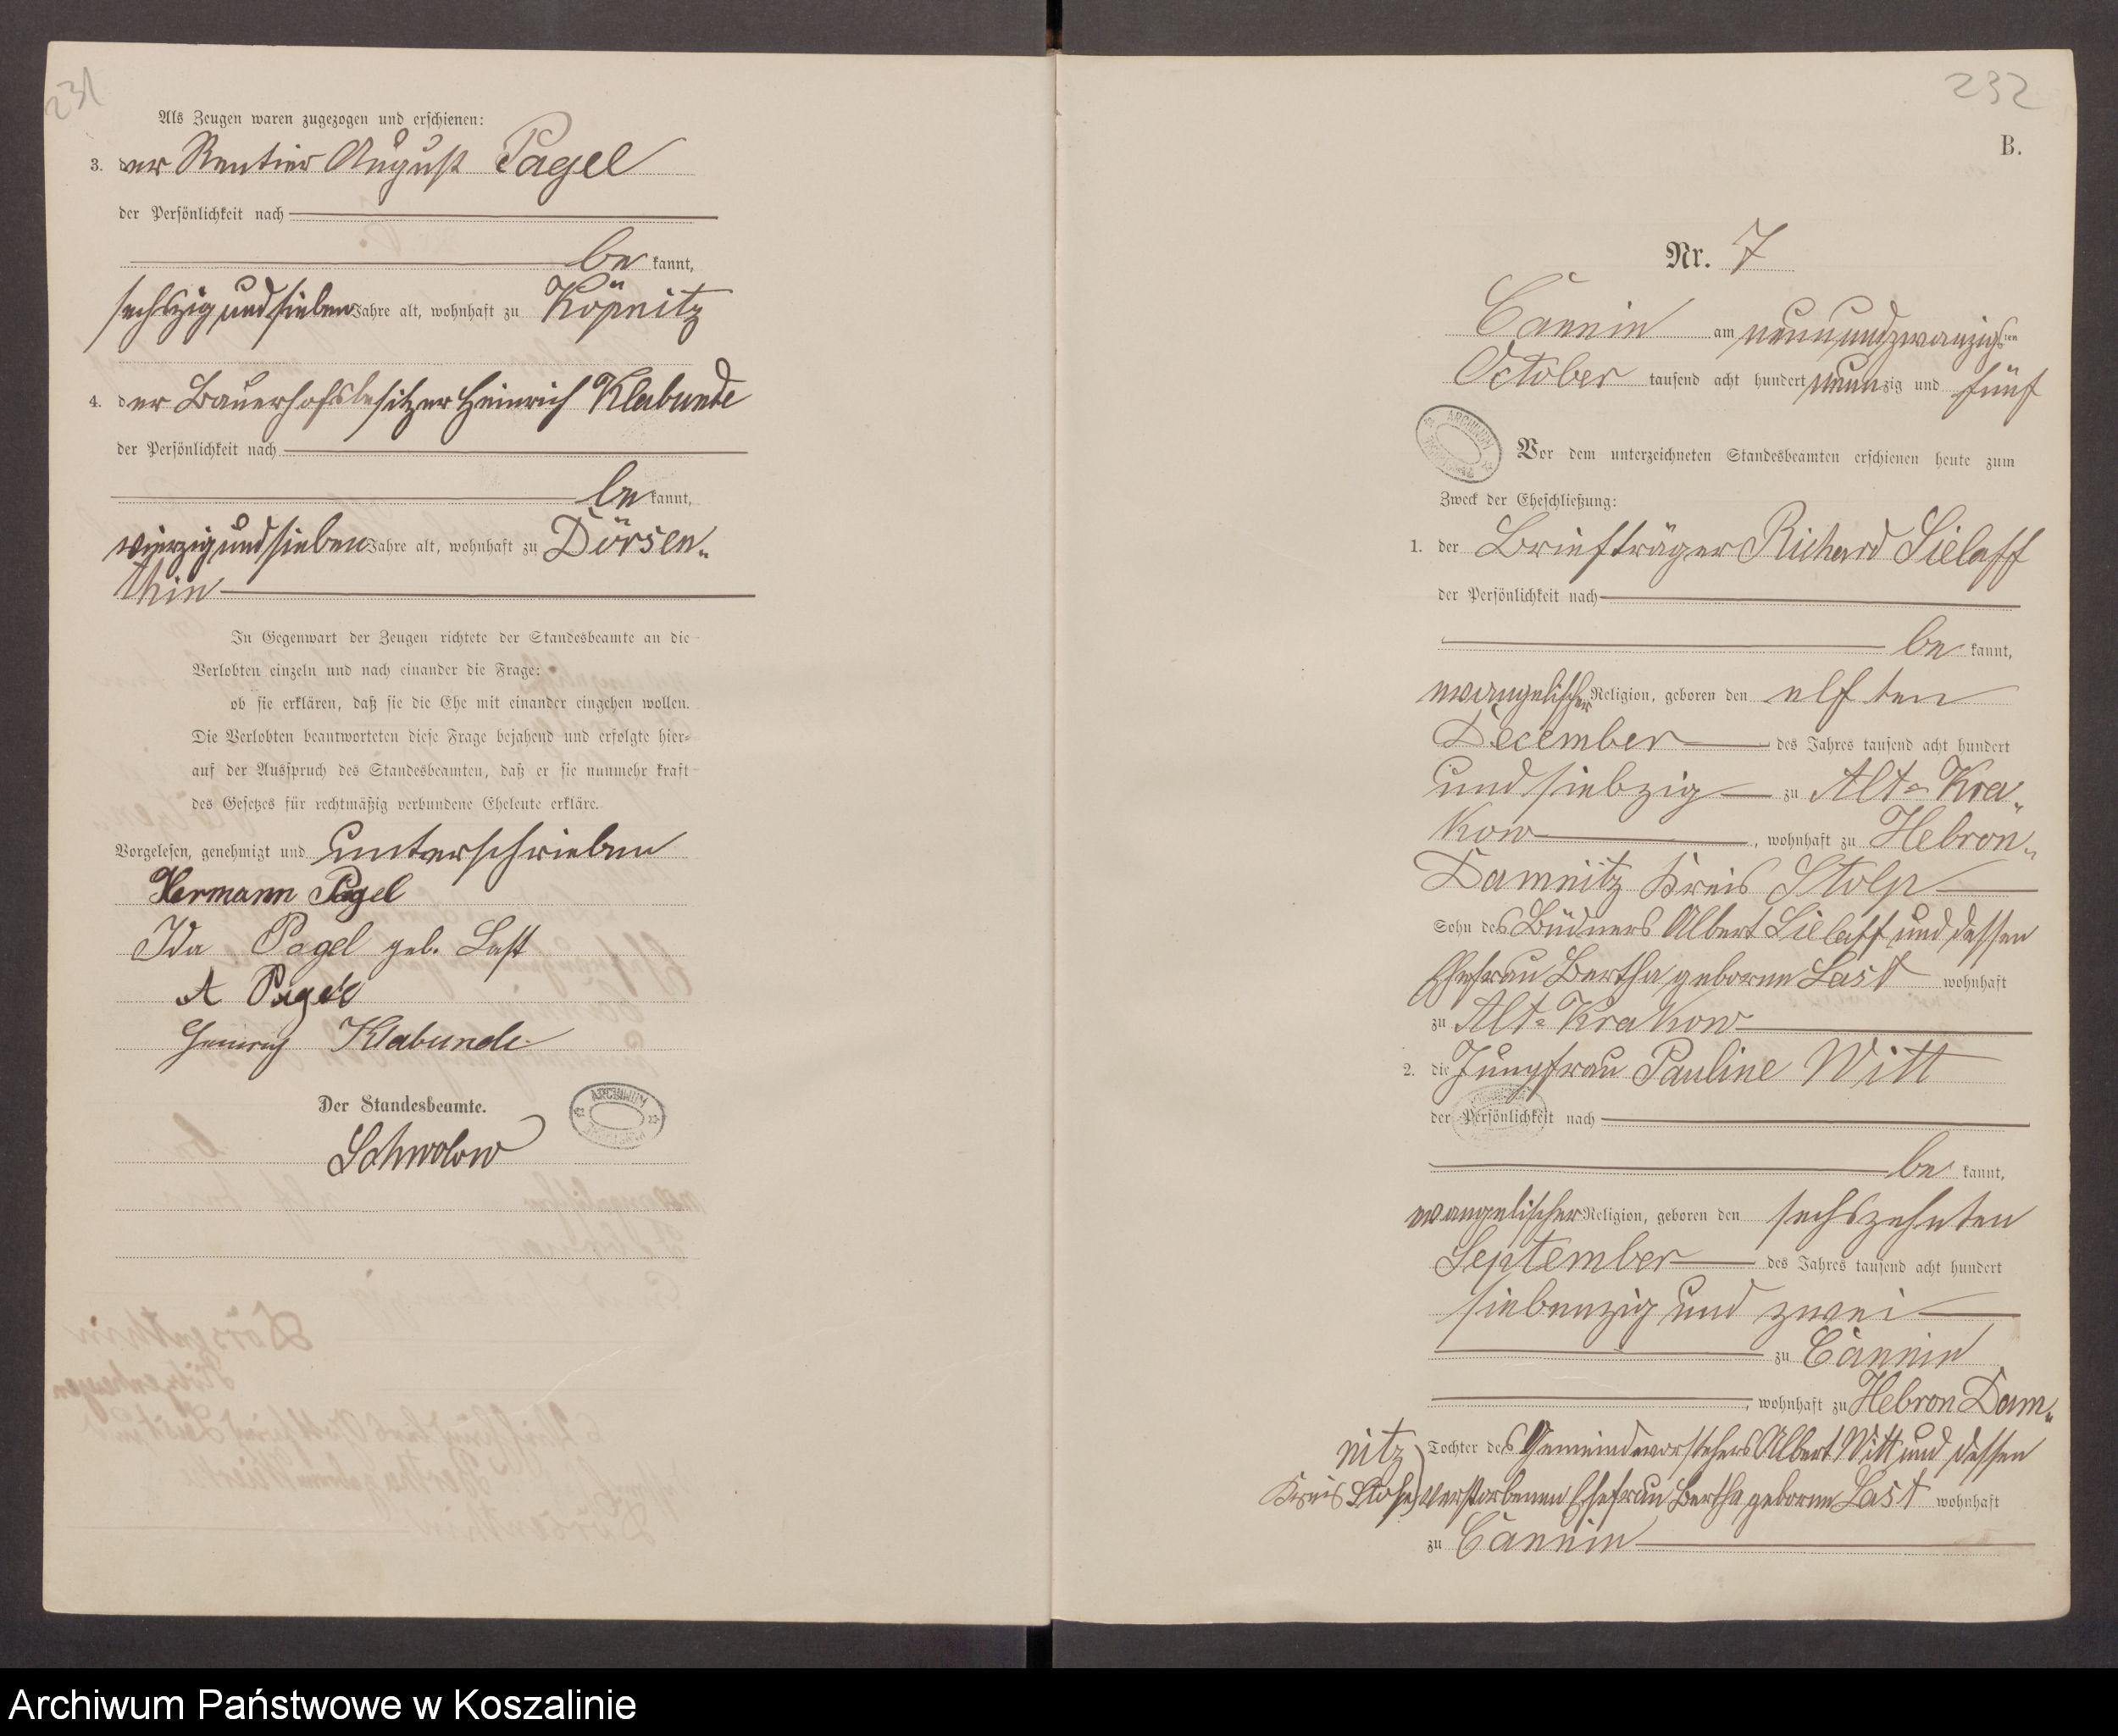 231
Als Zeugen waren zugezogen und erschienen:
3. der Rentier August Pagel
der Persönlichkeit nach
be kannt,
sechszig und sieben Jahre alt, wohnhaft zu Köpnitz
4. der Bauerhofsbesitzer Heinrich Klabunde
der Persönlichkeit nach
be kannt,
vierzig und sieben Jahre alt, wohnhaft zu Dörsen-
thin
In Gegenwart der Zeugen richtete der Standesbeamte an die
Verlobten einzeln und nach einander die Frage:
ob sie erklären, daß sie die Ehe mit einander eingehen wollen.
Die Verlobten beantworteten diese Frage bejahend und erfolgte hier-
auf der Ausspruch des Standesbeamten, daß er sie nunmehr kraft
des Gesetzes für rechtmäßig verbundene Eheleute erkläre.
Vorgelesen, genehmigt und unterschrieben
Hermann Pagel
Ida Pagel geb. Last
A Pagel
Heinrich Klabunde
Der Standesbeamte.
ARCHIWUM
Schwolow
232
B.
Nr. 7
Cannin am neunundzwanzigsten
October tausend acht hundert neunzig und fünf
ARCHIWUM
Vor dem unterzeichneten Standesbeamten erschienen heute zum
Zweck der Eheschließung:
1. der Briefträger Richard Lielaff
der Persönlichkeit nach
be kannt,
evangelischer Religion, geboren den elften
December des Jahres tausend acht hundert
und siebzig zu Alt-Kra-
kow, wohnhaft zu Hebron-
Damnitz Kreis Stolp
Sohn des Büdners Albert Lielaff und dessen
Ehefrau Bertha geborene Last wohnhaft
zu Alt-Krakow
2. die Jungfrau Pauline Witt
der Persönlichkeit nach
be kannt,
evangelischer Religion, geboren den sechszehnten
September des Jahres tausend acht hundert
siebenzig und zwei
zu Cannin
, wohnhaft zu Hebron Dam-
nitz Tochter des Gemeindevorstehers Albert Witt und dessen
Kreis Stolp) verstorbenen Ehefrau Bertha geborene Last wohnhaft
zu Cannin
Archiwum Państwowe w Koszalinie